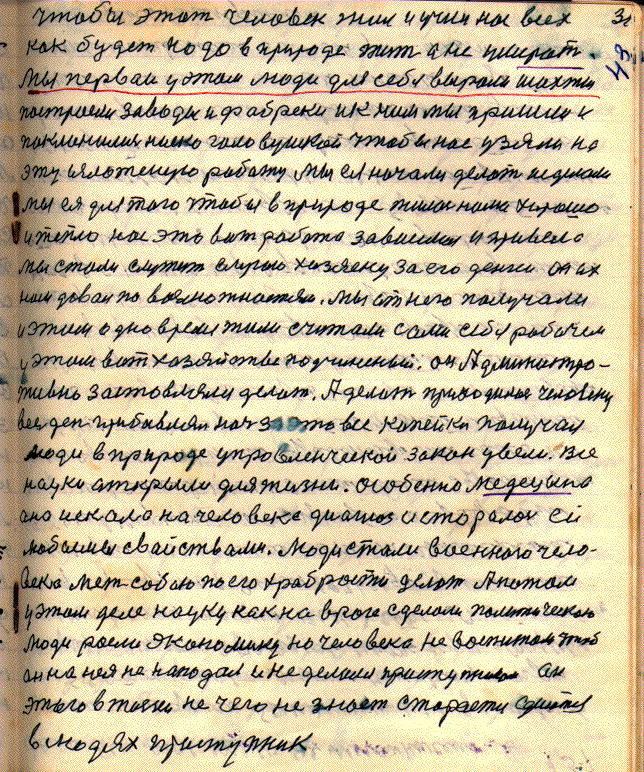 чтобы этот человек жил и учил нас всех 31
как будет надо в природе жит а не умерат. 43
Мы первыи у этом люди для себя вырыли шахты
построели заводы и фабреки и к ним мы пришли и
поклонилися ниско головушкой чтобы нас узяли на
эту работу мы ея начали делат и делали
мы ея для того чтобы в природе жилос нам хорошо
и тепло нас это вот работа зависила и привела
мы стали служит слугою хозяену за его денги он их
нам довал по возможностям. Мы от него получали
и этим одно время жили считали сами себя рабочем
у этом вот хозяйстве подчиненый. он Администро-
тивно заставляли делат. А делат приходилос человеку
весь ден прибавляли нам за это все копейки получал
люди в природе управленческой закон увели. Все
науки аткрыли для жизни. особенно медецына
ана искала на человека диагноз и старалас ей
любыми свайствами. Люди стали военного чело-
века меж собою по его храбрости делат А потом
у этом деле науку как на врага сделали политическою
люди расли экономику но человека не воспитали чтоб
он на нея не нападал и не делали приступником он
этого в жизни не чего не знает старается
в людях приступник